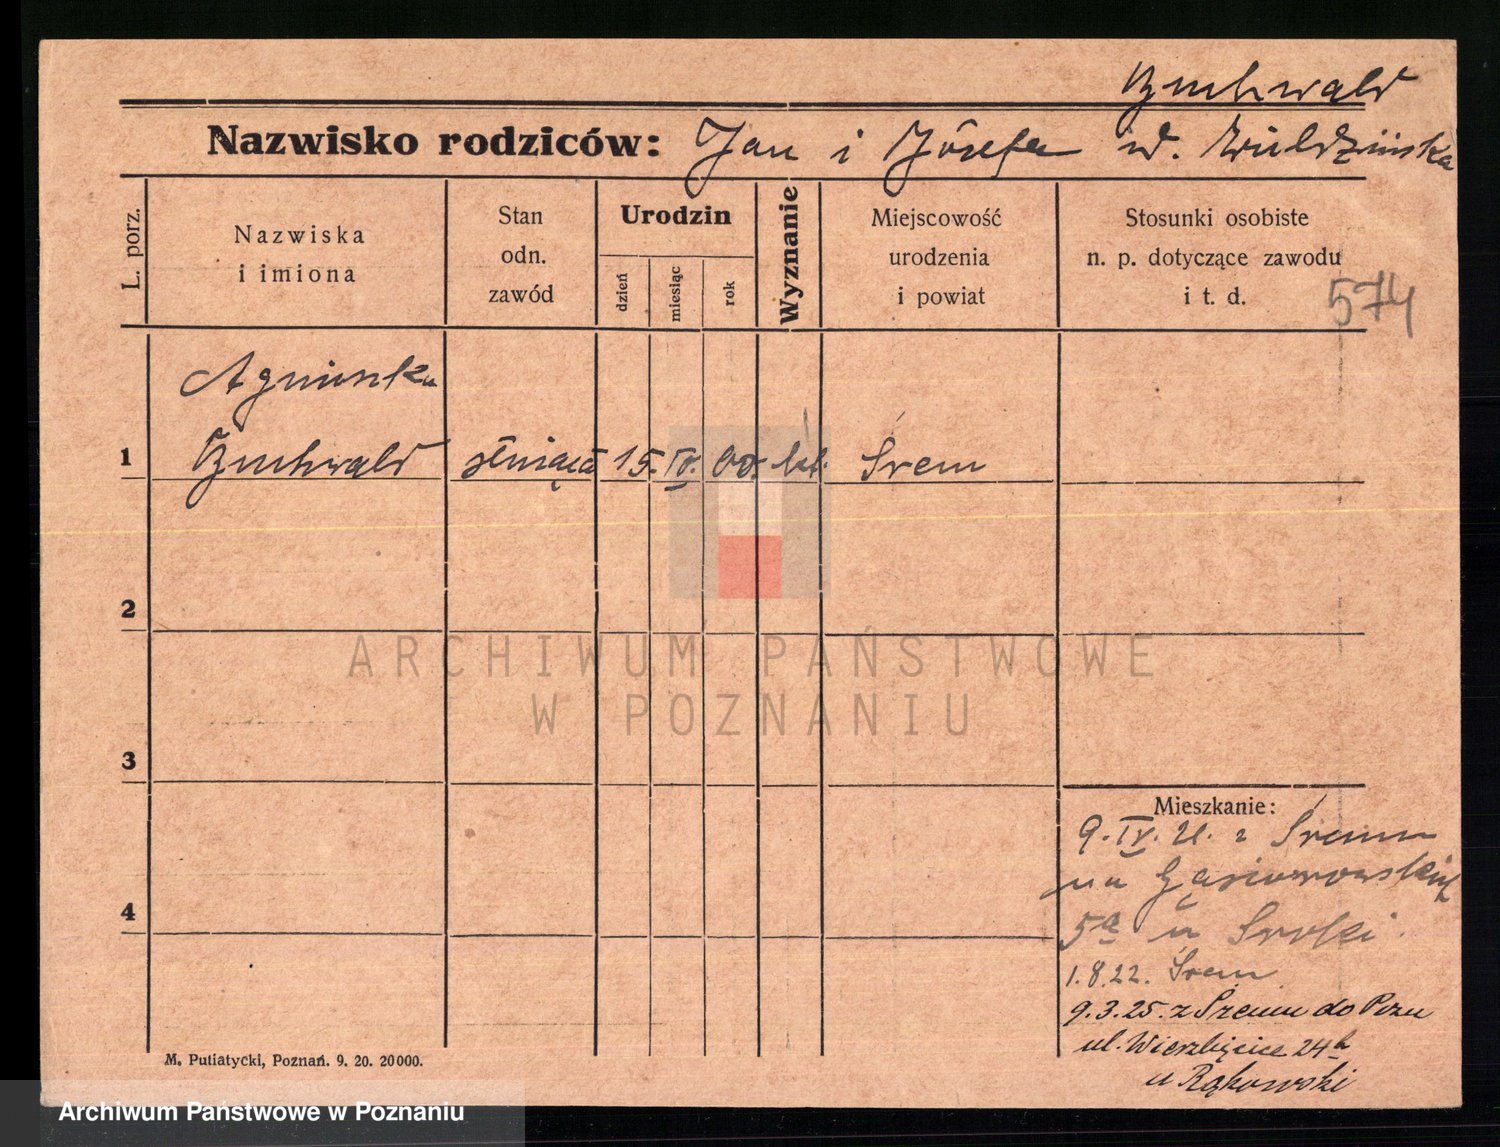 Buchwald
Nazwisko rodziców: Jan i Józefa
L. porz.
Nazwiska
i imiona
Stan
odn.
zawód
Urodzin
dzień
miesiąc
rok
Wyznanie
Miejscowość
urodzenia
i powiat
Stosunki osobiste
n. p. dotyczące zawodu
i t. d.
574
Agnieszka
1 Buchwald służąca 15. IV. 00. kat. Śrem
2
3
4
ARCHIWUM PAŃSTWOWE
W POZNANIU
Mieszkanie:
9. IV. 21. z Śremu
na Gąsiorowskich
5a u
1.8.22. Śrem
9.3.25. z Śremu do Pozn
ul. Wierzbięcice 24
u Rąkowski
M. Putiatycki, Poznań. 9. 20. 20000.
Archiwum Państwowe w Poznaniu